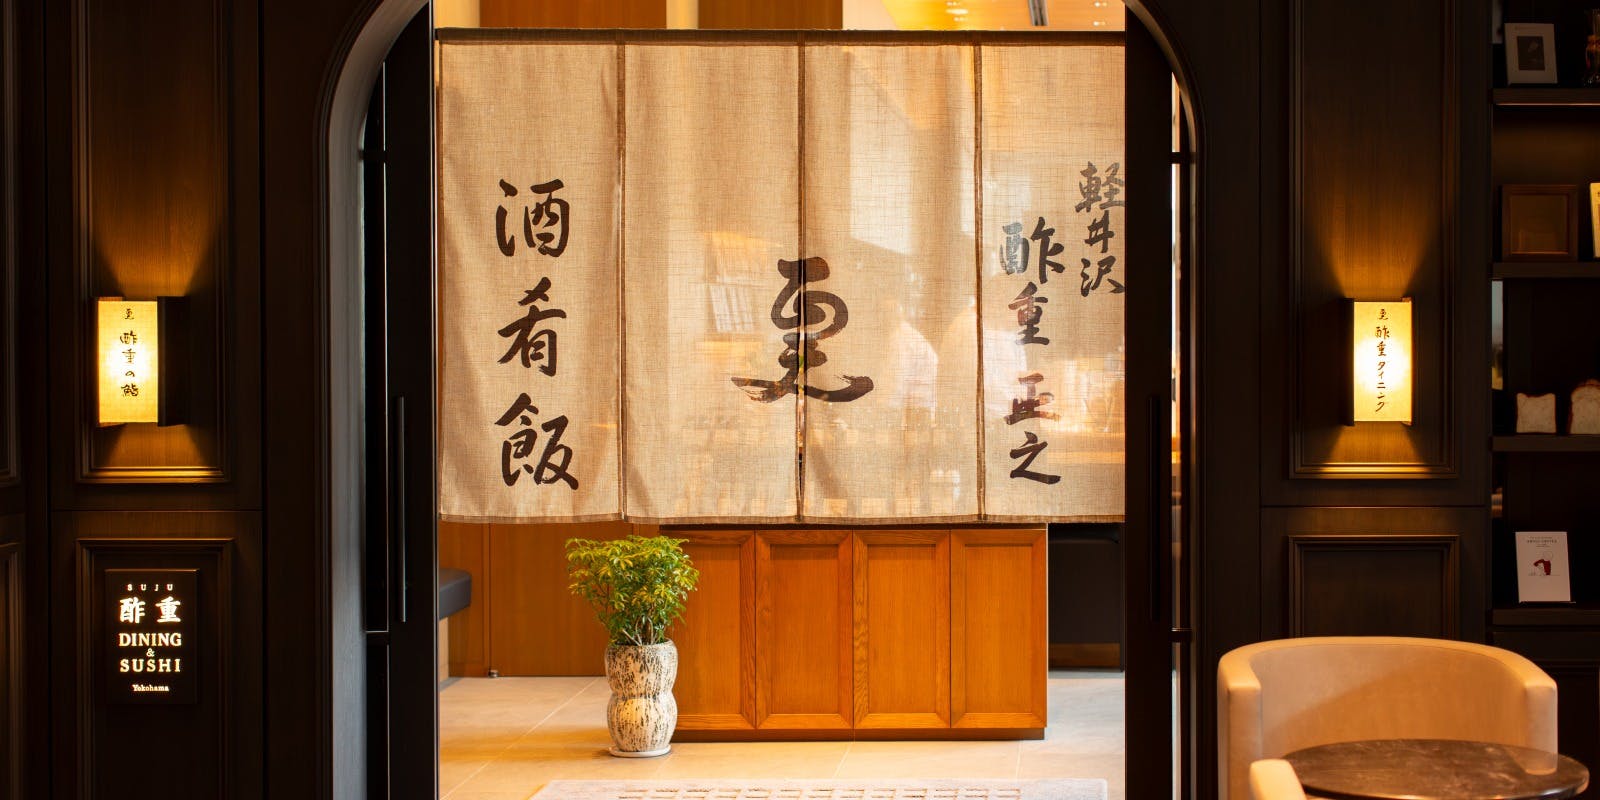 軽井沢
酢重正之
更
酒肴飯
更
酢重の鮨
更
酢重ダイニング
SUJU
酢重
DINING
&
SUSHI
Yokohama